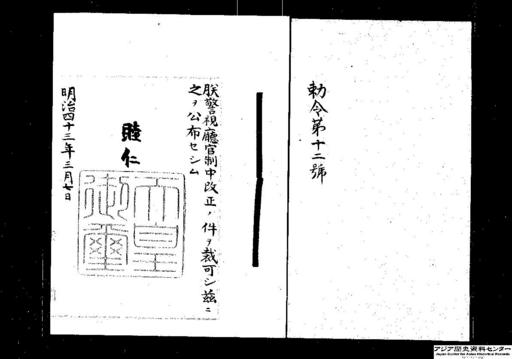 勅令第十二號
朕警視廳官制中改正ノ件ヲ裁可シ茲ニ
之ヲ公布セシム
睦仁
天皇
御璽
明治四十三年三月七日
アジア歴史資料センター
Japan Center for Asian Historical Records